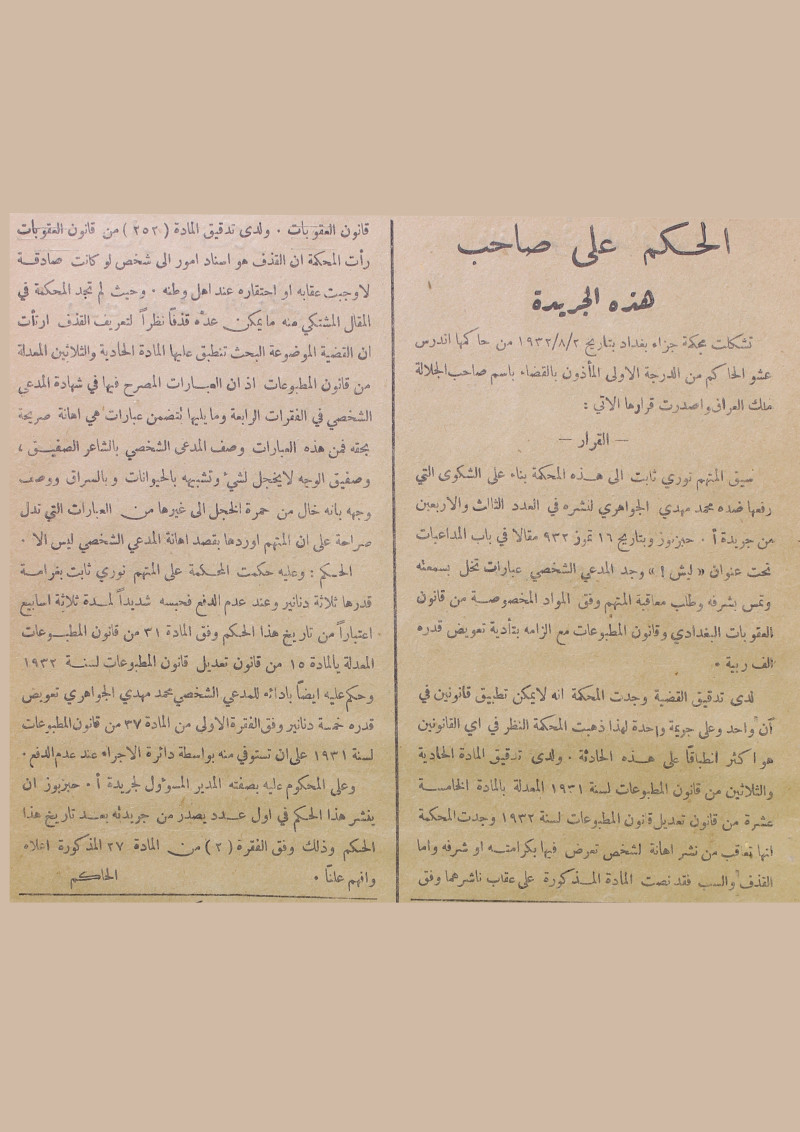 الحكم على صاحب
هذه الجريدة
تشكلت محكمة جزاء بغداد بتاريخ ١٩٣٢/٨/٢ من حاكمها اندرس
عشو الحاكم من الدرجة الاولى المأذون بالقضاء باسم صاحب الجلالة
ملك العراق واصدرت قرارها الآتي :
— القرار —
سيق المتهم نوري ثابت الى هذه المحكمة بناء على الشكوى التي
رفعها ضده محمد مهدي الجواهري لنشره في العدد الثالث والاربعين
من جريدة أ . حبزبوز وبتاريخ ١٦ تموز ٩٣٢ مقالا في باب المداعبات
تحت عنوان « ليش ! » وجد المدعي الشخصي عبارات تخل بسمعته
وتمس بشرفه وطلب معاقبة المتهم وفق المواد المخصوصة من قانون
العقوبات البغدادي وقانون المطبوعات مع الزامه بتأدية تعويض قدره
الف ربية .
لدى تدقيق القضية وجدت المحكمة انه لا يمكن تطبيق قانونين في
آن واحد وعلى جريمة واحدة لهذا ذهبت المحكمة النظر في اي القانونين
هو اكثر انطباقاً على هذه الحادثة . ولدى تدقيق المادة الحادية
والثلاثين من قانون المطبوعات لسنة ١٩٣١ المعدلة بالمادة الخامسة
عشرة من قانون تعديل قانون المطبوعات لسنة ١٩٣٢ وجدت المحكمة
انها تعاقب من نشر اهانة لشخص تعرض فيها بكرامته او شرفه واما
القذف والسب فقد نصت المادة المذكورة على عقاب ناشرهما وفق
قانون العقوبات . ولدى تدقيق المادة (٢٥٢) من قانون العقوبات
رأت المحكمة ان القذف هو اسناد امور الى شخص لو كانت صادقة
لاوجبت عقابه او احتقاره عند اهل وطنه . وحيث لم تجد المحكمة في
المقال المشتكي منه ما يمكن عده قذفاً نظراً لتعريف القذف ارتأت
ان القضية الموضوعة البحث تنطبق عليها المادة الحادية والثلاثين المعدلة
من قانون المطبوعات اذ ان العبارات المصرح فيها في شهادة المدعي
الشخصي في الفقرات الرابعة وما يليها تتضمن عبارات هي اهانة صريحة
بحقه فمن هذه العبارات وصف المدعي الشخصي بالشاعر الصفيق ،
وصفيق الوجه لا يخجل لشيء وتشبيهه بالحيوانات وبالسراق ووصف
وجهه بانه خال من حمرة الخجل الى غيرها من العبارات التي تدل
صراحة على ان المتهم اوردها بقصد اهانة المدعي الشخصي ليس الا .
الحكم : وعليه حكمت المحكمة على المتهم نوري ثابت بغرامة
قدرها ثلاثة دنانير وعند عدم الدفع فحبسه شديداً لمدة ثلاثة اسابيع
اعتباراً من تاريخ هذا الحكم وفق المادة ٣١ من قانون المطبوعات
المعدلة بالمادة ١٥ من قانون تعديل قانون المطبوعات لسنة ١٩٣٢
وحكم عليه ايضاً بادائه للمدعي الشخصي محمد مهدي الجواهري تعويض
قدره خمسة دنانير وفق الفقرة الاولى من المادة ٣٧ من قانون المطبوعات
لسنة ١٩٣١ على ان تستوفي منه بواسطة دائرة الاجراء عند عدم الدفع .
وعلى المحكوم عليه بصفته المدير المسؤول لجريدة أ . حبزبوز ان
ينشر هذا الحكم في اول عدد يصدر من جريدته بعد تاريخ هذا
الحكم وذلك وفق الفقرة (٢) من المادة ٢٧ المذكورة اعلاه
وافهم علناً . الحاكم